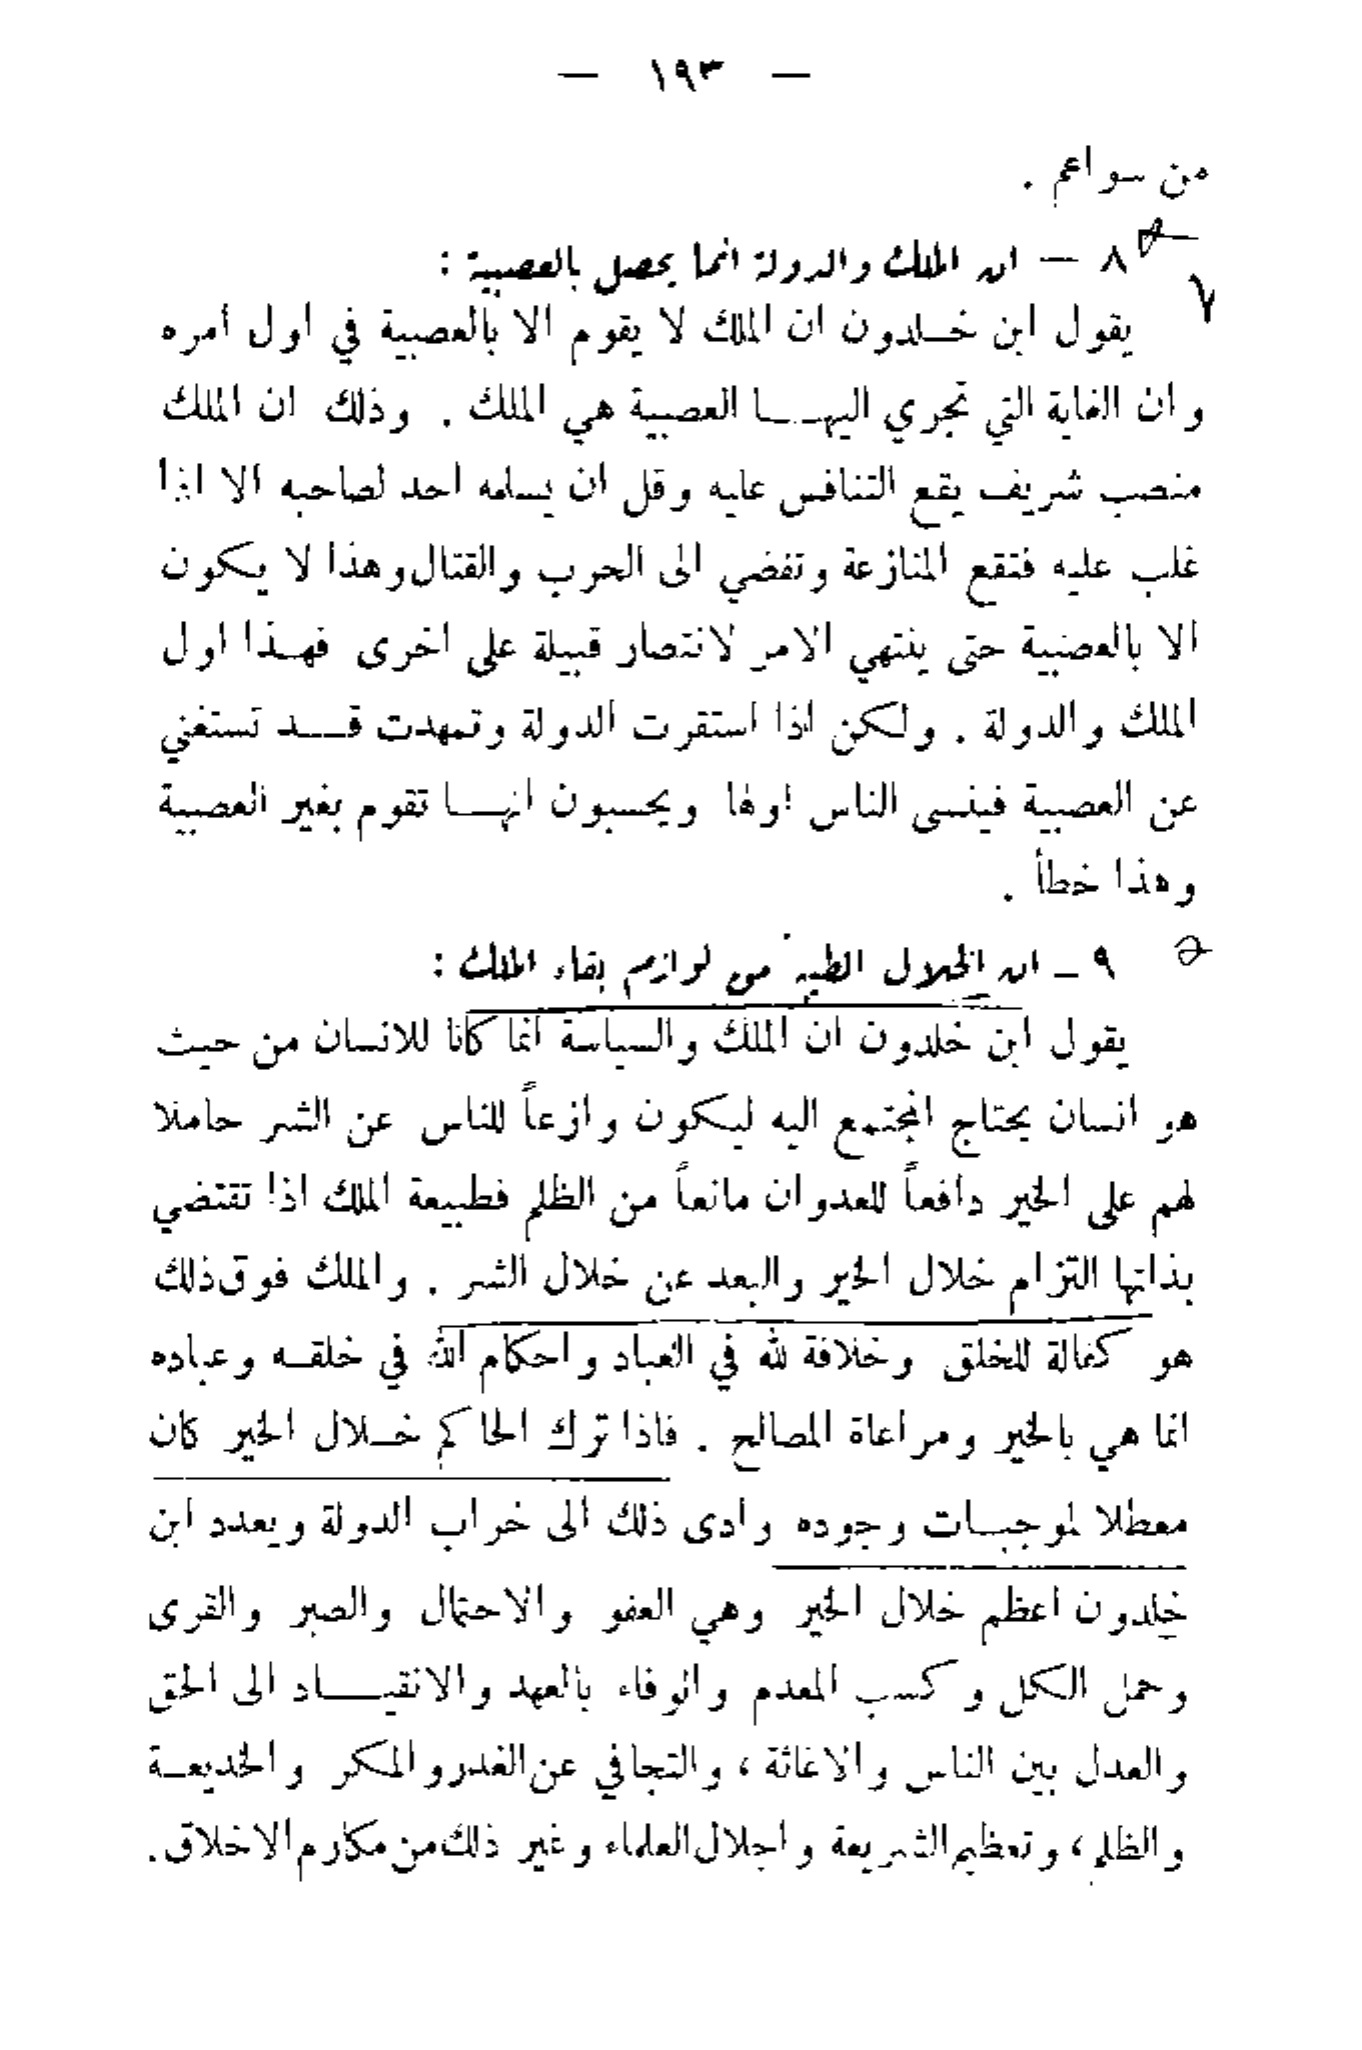 — ١٩٣ —
من سواعم .
٨ — ان الملك والدولة انما يحصل بالعصبية :
٧
يقول ابن خـلدون ان الملك لا يقوم الا بالعصبية في اول امره
وان الغاية التي تجري اليهـا العصبية هي الملك . وذلك ان الملك
منصب شريف يقع التنافس عليه وقل ان يسلمه احد لصاحبه الا اذا
غلب عليه فتقع المنازعة وتفضي الى الحرب والقتال وهذا لا يكون
الا بالعصبية حتى ينتهي الامر لانتصار قبيلة على اخرى فهـذا اول
الملك والدولة . ولكن اذا استقرت الدولة وتمهدت قـد تستغني
عن العصبية فينسى الناس اولها ويحسبون انهـا تقوم بغير العصبية
وهذا خطأ .
٩ ـ ان الخلال الطيبة من لوازم بقاء الملك :
يقول ابن خلدون ان الملك والسياسة انما كانا للانسان من حيث
هو انسان يحتاج المجتمع اليه ليكون وازعاً للناس عن الشر حاملا
لهم على الخير دافعاً للعدوان مانعاً من الظلم فطبيعة الملك اذا تقتضي
بذاتها التزام خلال الخير والبعد عن خلال الشر . والملك فوق ذلك
هو كفالة للخلق وخلافة لله في العباد واحكام الله في خلقـه وعباده
انما هي بالخير ومراعاة المصالح . فاذا ترك الحاكم خـلال الخير كان
معطلا لموجبـات وجوده وادى ذلك الى خراب الدولة ويعدد ابن
خلدون اعظم خلال الخير وهي العفو والاحتمال والصبر والقرى
وحمل الكل وكسب المعدم والوفاء بالعهد والانقيـاد الى الحق
والعدل بين الناس والاغاثة ، والتجافي عن الغدر والمكر والخديعـة
والظلم ، وتعظيم الشريعة واجلال العلماء وغير ذلك من مكارم الاخلاق .